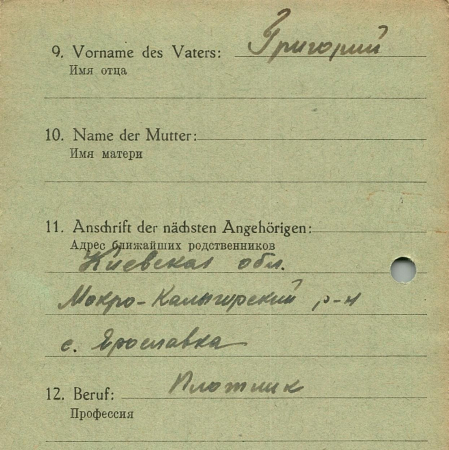 9. Vorname des Vaters: Григорий
Имя отца
10. Name der Mutter:
Имя матери
11. Anschrift der nächsten Angehörigen:
Адрес ближайших родственников
Киевская обл.
Мокро-Калыгирский р-н
с. Ярославка
12. Beruf: Плотник
Профессия